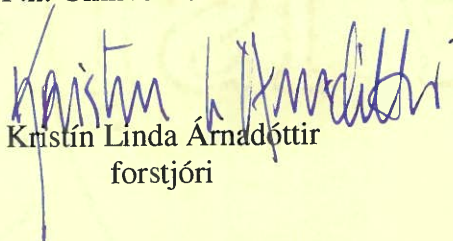 Kristín L Árnadóttir
Kristín Linda Árnadóttir
forstjóri